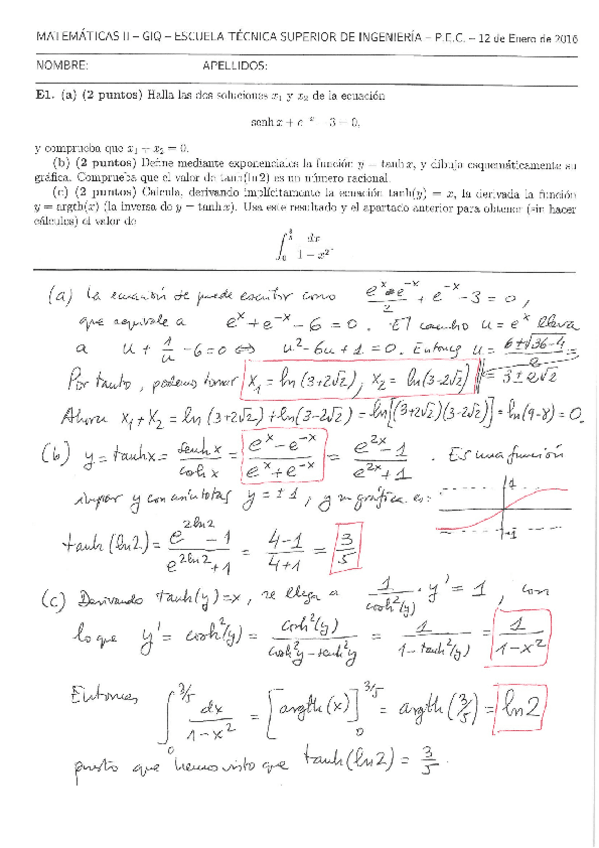 MATEMÁTICAS II – GIQ – ESCUELA TÉCNICA SUPERIOR DE INGENIERÍA – P.E.C. – 12 de Enero de 2016
NOMBRE: APELLIDOS:
E1. (a) (2 puntos) Halla las dos soluciones x₁ y x₂ de la ecuación
senh x + e⁻ˣ − 3 = 0,
y comprueba que x₁ + x₂ = 0.
(b) (2 puntos) Define mediante exponenciales la función y = tanh x, y dibuja esquemáticamente su
gráfica. Comprueba que el valor de tanh(ln 2) es un número racional.
(c) (2 puntos) Calcula, derivando implícitamente la ecuación tanh(y) = x, la derivada la función
y = argth(x) (la inversa de y = tanh x). Usa este resultado y el apartado anterior para obtener (sin hacer
cálculos) el valor de
∫₀^{3/5} dx / (1 − x²).
(a) La ecuación se puede escribir como (eˣ − e⁻ˣ)/2 + e⁻ˣ − 3 = 0,
que equivale a eˣ + e⁻ˣ − 6 = 0. El cambio u = eˣ lleva
a u + 1/u − 6 = 0 ⇔ u² − 6u + 1 = 0. Entonces u = (6 ± √(36−4))/2 =
Por tanto, podemos tomar x₁ = ln(3+2√2), x₂ = ln(3−2√2) = 3 ± 2√2
Ahora x₁ + x₂ = ln(3+2√2) + ln(3−2√2) = ln[(3+2√2)(3−2√2)] = ln(9−8) = 0.
(b) y = tanh x = senh x / cosh x = (eˣ − e⁻ˣ)/(eˣ + e⁻ˣ) = (e²ˣ − 1)/(e²ˣ + 1). Es una función
impar y con asíntotas y = ±1, y su gráfica es: 1
-1
tanh(ln 2) = (e^{2ln2} − 1)/(e^{2ln2} + 1) = (4−1)/(4+1) = 3/5
(c) Derivando tanh(y) = x, se llega a 1/cosh²(y) · y' = 1, con
lo que y' = cosh²(y) = cosh²(y)/(cosh²y − senh²y) = 1/(1 − tanh²(y)) = 1/(1−x²)
Entonces ∫₀^{3/5} dx/(1−x²) = [argth(x)]₀^{3/5} = argth(3/5) = ln 2
puesto que hemos visto que tanh(ln 2) = 3/5.